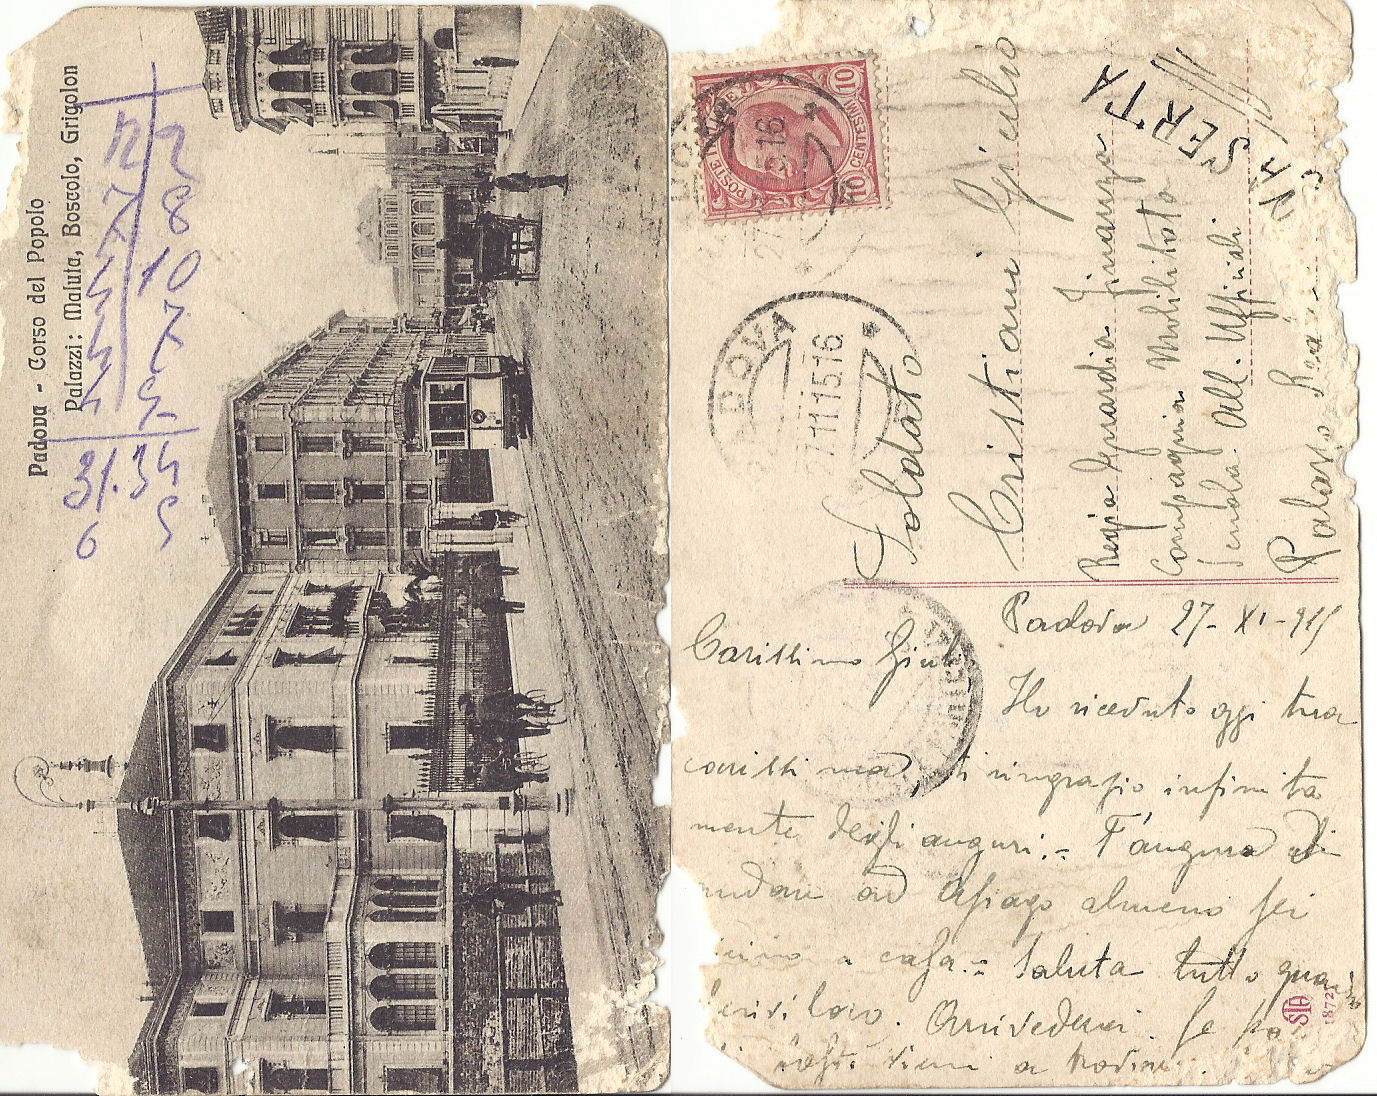 Padova - Corso del Popolo
Palazzi: Maluta, Boscolo, Grigolon
12 2
7 8
7 10
4 7
4 5
4
31.34
6 5
POSTE ITALIANE
CENTESIMI 10
10
PADOVA
27.11.15.16
Soldato
Cristiani Giulio
Regia Guardia Finanza
Compagnia Mobilitata
Scuola All. Ufficiali
Palazzo Rea
CASERTA
Padova 27-XI-915
Carissimo Giulio
Ho ricevuto oggi tua
carissima ti ringrazio infinita
mente degli auguri.= T'auguro di
andare ad Asiago almeno sei
vicino a casa.= Saluta tutto quan
scrivi loro. Arrivederci. Se
vieni a
STA
1872